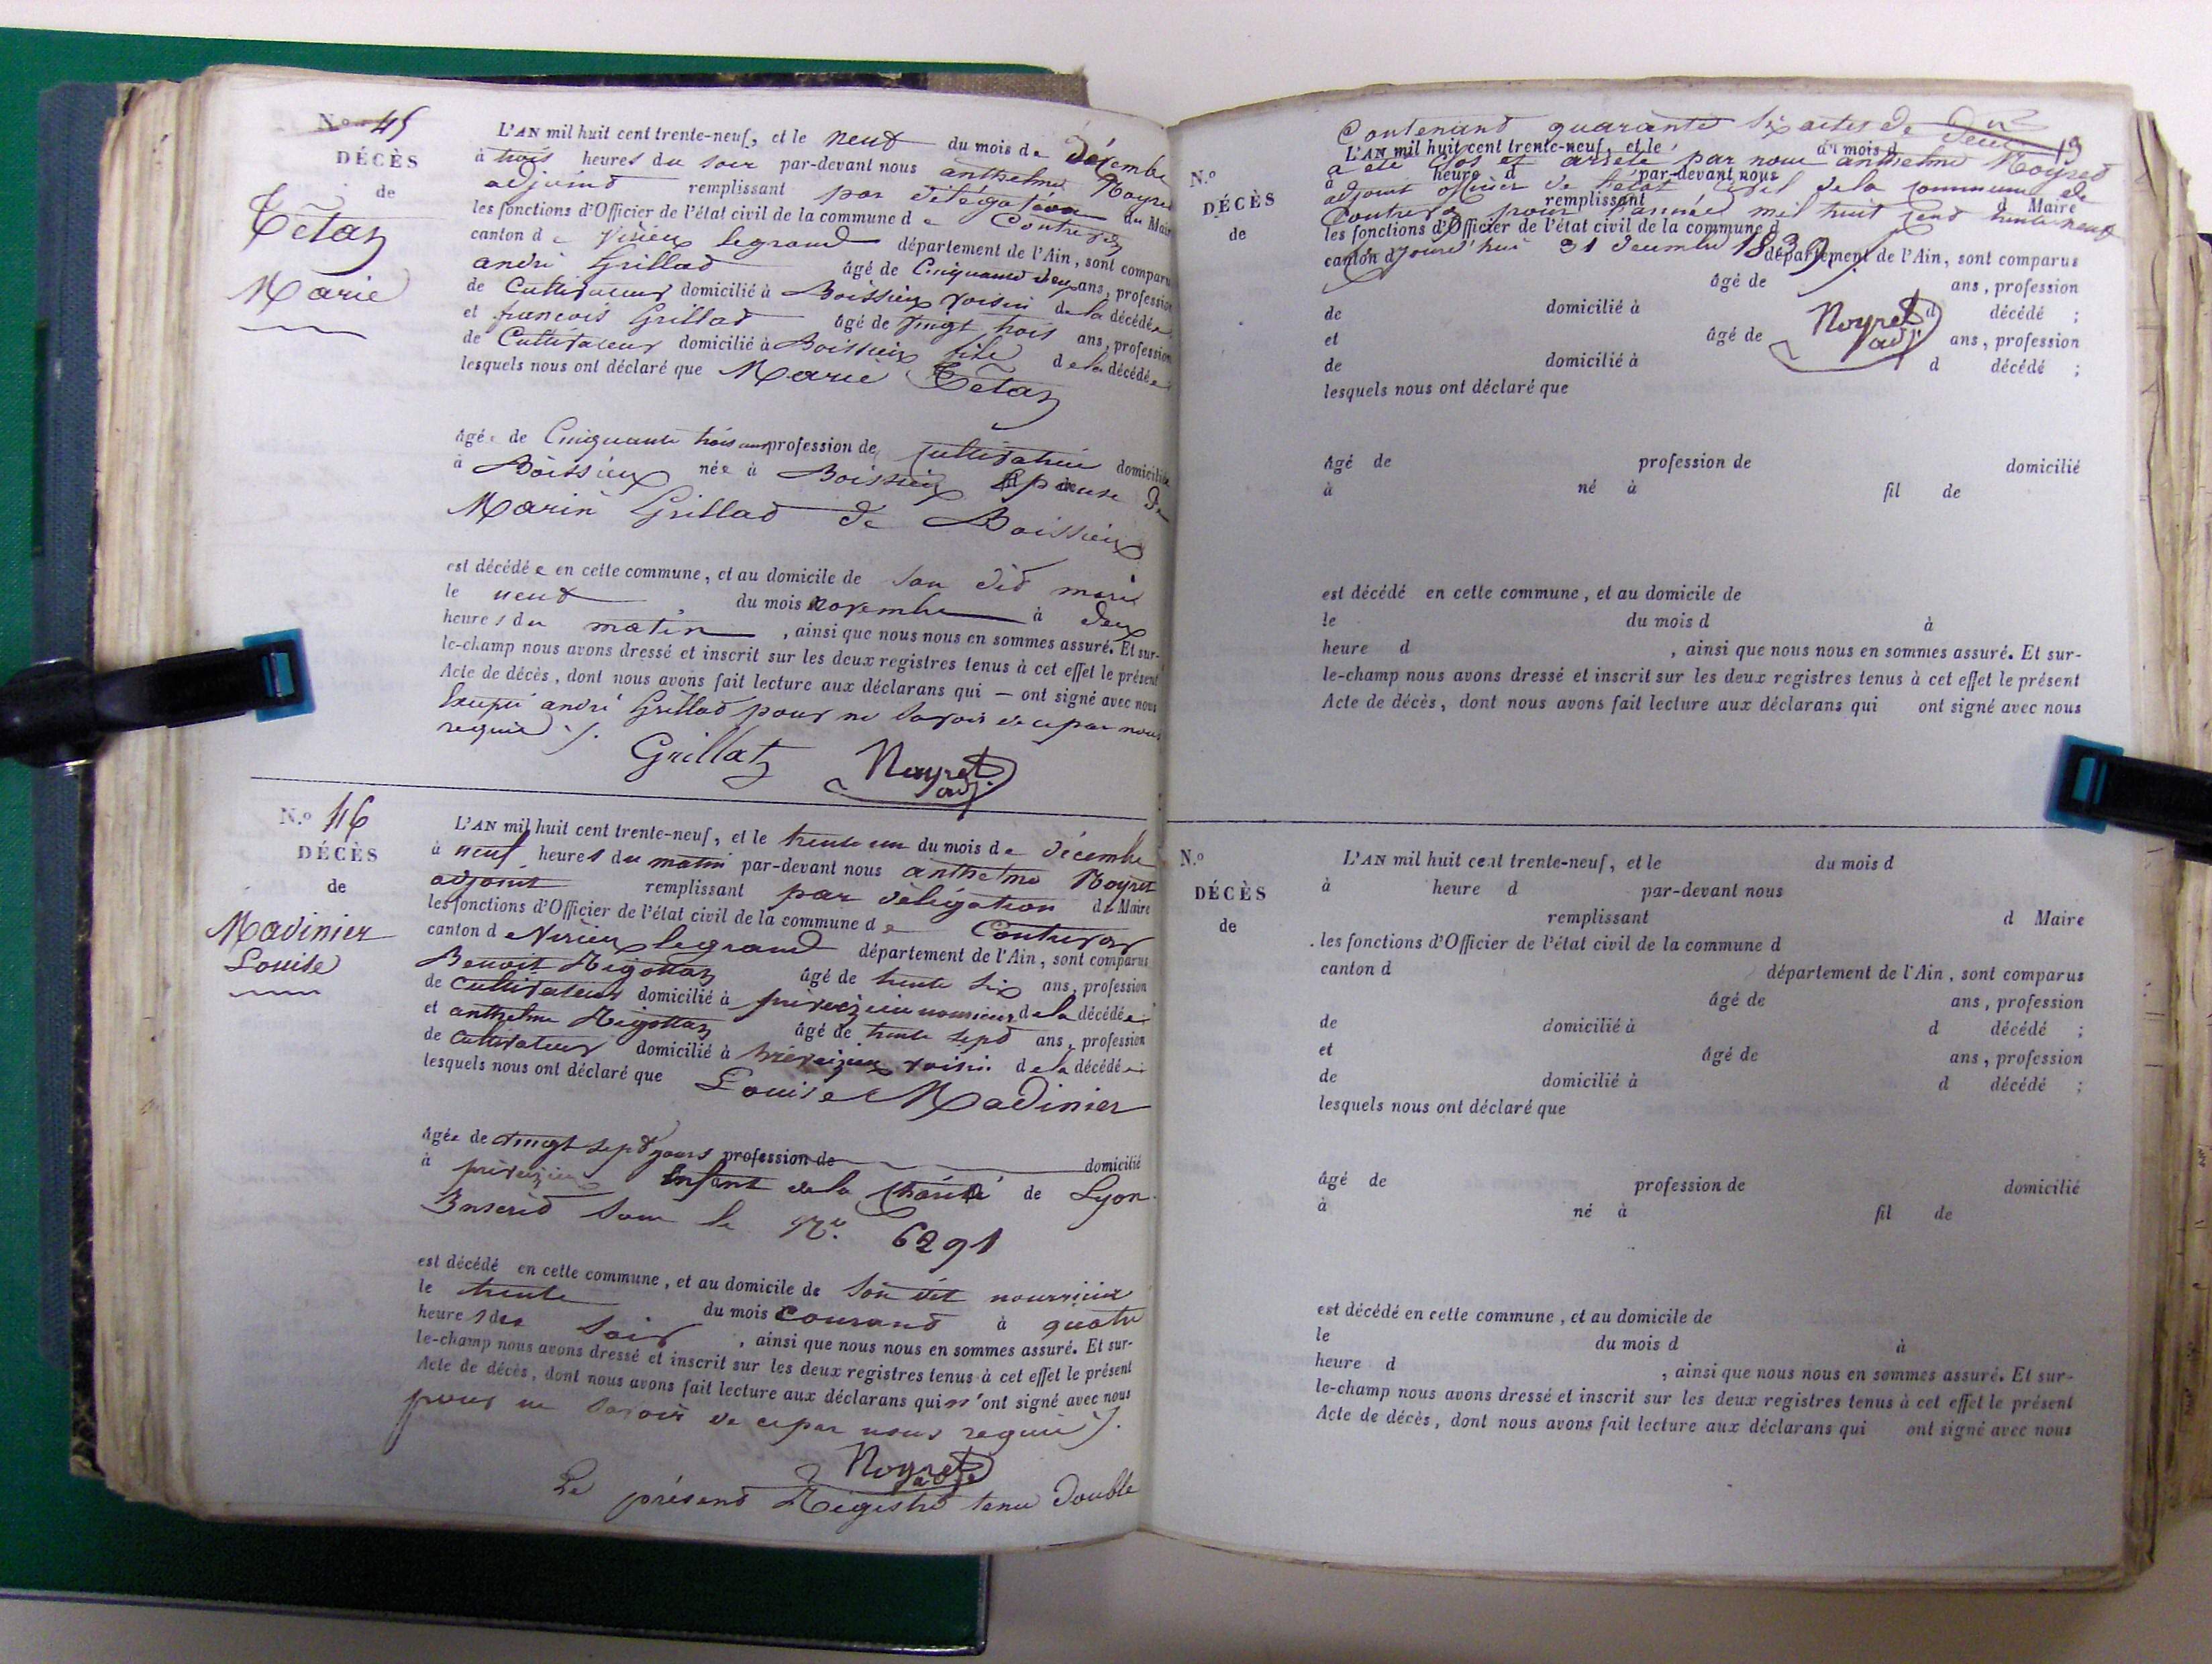 N.o 45
DÉCÈS
de
Tétaz
Marie
L'AN mil huit cent trente-neuf, et le neuf du mois de décembre
à trois heures du soir par-devant nous anthelme Noyret
adjoint remplissant par délégation du Maire
les fonctions d'Officier de l'état civil de la commune de Contrevoz
canton de Virieu legrand département de l'Ain, sont comparus
andré Grillad âgé de Cinquante deux ans, profession
de Cultivateur domicilié à Boissieu voisin de la décédée
et francois Grillad âgé de Vingt trois ans, profession
de Cultivateur domicilié à Boissieu fils de la décédée
lesquels nous ont déclaré que Marie Tétaz
âgée de Cinquante trois ans profession de Cultivatrice domiciliée
à Boissieu née à Boissieu Epouse De
Marin Grillad de Boissieu
est décédée en cette commune, et au domicile de son did mari
le neuf du mois novembre à deux
heures du matin, ainsi que nous nous en sommes assuré. Et sur-
le-champ nous avons dressé et inscrit sur les deux registres tenus à cet effet le présent
Acte de décès, dont nous avons fait lecture aux déclarans qui — ont signé avec nous
Excepté andré Grillad pour ne savoir de ce par nous
requis ./.
Grillat Noyret adj.
N.o 46
DÉCÈS
de
Madinier
Louise
L'AN mil huit cent trente-neuf, et le trente un du mois de décembre
à neuf heures du matin par-devant nous anthelme Noyret
adjoint remplissant par délégation du Maire
les fonctions d'Officier de l'état civil de la commune de Contrevoz
canton de Virieu legrand département de l'Ain, sont comparus
Benoit Rigottaz âgé de trente six ans, profession
de cultivateur domicilié à preveizieu nourricier de la décédée
et anthelme Rigottaz âgé de trente sept ans, profession
de cultivateur domicilié à préveizieu voisin de la décédée
lesquels nous ont déclaré que Louise Madinier
âgée de vingt sept jours profession de domicilié
à préveizieu Enfant de la Charité de Lyon
Inscrid sous le No. 6291
est décédé en cette commune, et au domicile de son dit nourricier
le trente du mois courand à quatre
heures du soir, ainsi que nous nous en sommes assuré. Et sur-
le-champ nous avons dressé et inscrit sur les deux registres tenus à cet effet le présent
Acte de décès, dont nous avons fait lecture aux déclarans qui n'ont signé avec nous
pour ne savoir de ce par nous requis ./.
Noyret adj
Le présend Régistre tenu double
Contenand quarante six actes de
a été clos et arrêté par nous anthelme Noyret
adjoint officier de l'état civil de la commune de
Contrevoz pour l'année mil huit cend trente neuf
cejourd'hui 31 décembre 1839 ./.
Noyret adj
N.o
DÉCÈS
de
L'AN mil huit cent trente-neuf, et le du mois d
à heure d par-devant nous
remplissant d Maire
les fonctions d'Officier de l'état civil de la commune d
canton d département de l'Ain, sont comparus
âgé de ans, profession
de domicilié à d décédé ;
et âgé de ans, profession
de domicilié à d décédé ;
lesquels nous ont déclaré que
âgé de profession de domicilié
à né à fil de
est décédé en cette commune, et au domicile de
le du mois d à
heure d , ainsi que nous nous en sommes assuré. Et sur-
le-champ nous avons dressé et inscrit sur les deux registres tenus à cet effet le présent
Acte de décès, dont nous avons fait lecture aux déclarans qui ont signé avec nous
N.o
DÉCÈS
de
L'AN mil huit cent trente-neuf, et le du mois d
à heure d par-devant nous
remplissant d Maire
les fonctions d'Officier de l'état civil de la commune d
canton d département de l'Ain, sont comparus
âgé de ans, profession
de domicilié à d décédé ;
et âgé de ans, profession
de domicilié à d décédé ;
lesquels nous ont déclaré que
âgé de profession de domicilié
à né à fil de
est décédé en cette commune, et au domicile de
le du mois d à
heure d , ainsi que nous nous en sommes assuré. Et sur-
le-champ nous avons dressé et inscrit sur les deux registres tenus à cet effet le présent
Acte de décès, dont nous avons fait lecture aux déclarans qui ont signé avec nous